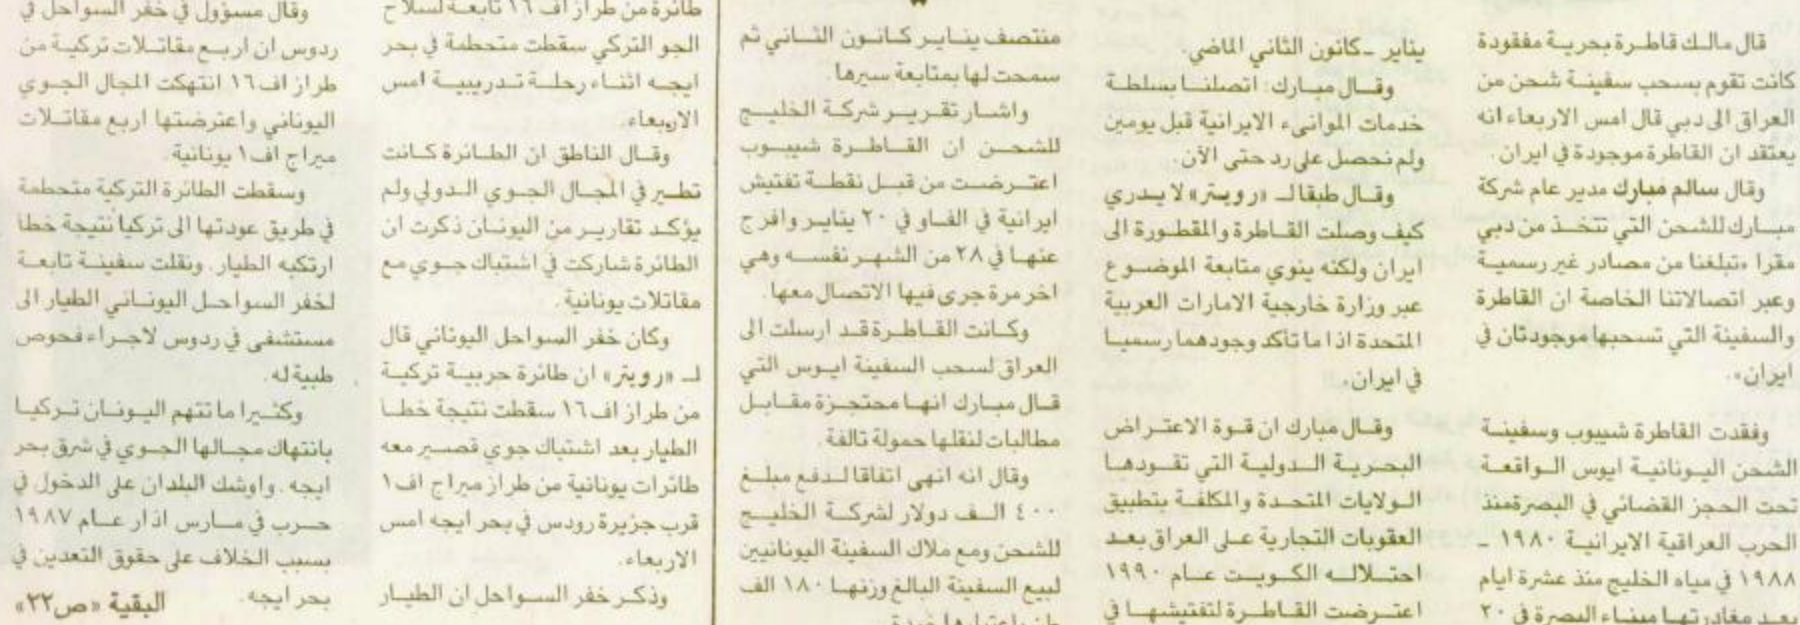 قال مالك قاطرة بحرية مفقودة
كانت تقوم بسحب سفينة شحن من
العراق الى دبي قال امس الاربعاء انه
يعتقد ان القاطرة موجودة في ايران.
وقال سالم مبارك مدير عام شركة
مبارك للشحن التي تتخذ من دبي
مقرا «تبلغنا من مصادر غير رسمية
وعبر اتصالاتنا الخاصة ان القاطرة
والسفينة التي تسحبها موجودتان في
ايران».
وفقدت القاطرة شيبوب وسفينة
الشحن اليونانية ايوس الواقعة
تحت الحجز القضائي في البصرة منذ
الحرب العراقية الايرانية ١٩٨٠ -
١٩٨٨ في مياه الخليج منذ عشرة ايام
بعد مغادرتها ميناء البصرة في ٢٠
يناير - كانون الثاني الماضي.
وقال مبارك: اتصلنا بسلطة
خدمات الموانىء الايرانية قبل يومين
ولم نحصل على رد حتى الآن.
وقال طبقا لـ «رويتر» لا يدري
كيف وصلت القاطرة والمقطورة الى
ايران ولكنه ينوي متابعة الموضوع
عبر وزارة خارجية الامارات العربية
المتحدة اذا ما تأكد وجودهما رسميا
في ايران.
وقال مبارك ان قوة الاعتراض
البحرية الدولية التي تقودها
الولايات المتحدة والمكلفة بتطبيق
العقوبات التجارية على العراق بعد
احتلاله الكويت عام ١٩٩٠
اعترضت القاطرة لتفتيشها في
منتصف يناير كانون الثاني ثم
سمحت لها بمتابعة سيرها.
واشار تقرير شركة الخليج
للشحن ان القاطرة شيبوب
اعترضت من قبل نقطة تفتيش
ايرانية في الفاو في ٢٠ يناير وافرج
عنها في ٢٨ من الشهر نفسه وهي
اخر مرة جرى فيها الاتصال معها.
وكانت القاطرة قد ارسلت الى
العراق لسحب السفينة ايوس التي
قال مبارك انها محتجزة مقابل
مطالبات لنقلها حمولة تالفة.
وقال انه انهى اتفاقا لدفع مبلغ
٤٠٠ الف دولار لشركة الخليج
للشحن ومع ملاك السفينة اليونانيين
لبيع السفينة البالغ وزنها ١٨٠ الف
طن باعتبارها خردة
طائرة من طراز اف ١٦ تابعة لسلاح
الجو التركي سقطت متحطمة في بحر
ايجه اثناء رحلة تدريبية امس
الاربعاء.
وقال الناطق ان الطائرة كانت
تطير في المجال الجوي الدولي ولم
يؤكد تقارير من اليونان ذكرت ان
الطائرة شاركت في اشتباك جوي مع
مقاتلات يونانية.
وكان خفر السواحل اليوناني قال
لـ «رويتر» ان طائرة حربية تركية
من طراز اف ١٦ سقطت نتيجة خطا
الطيار بعد اشتباك جوي قصير معه
طائرات يونانية من طراز ميراج اف١
قرب جزيرة رودس في بحر ايجه امس
الاربعاء.
وذكر خفر السواحل ان الطيار
وقال مسؤول في خفر السواحل في
ردوس ان اربع مقاتلات تركية من
طراز اف١٦ انتهكت المجال الجوي
اليوناني واعترضتها اربع مقاتلات
ميراج اف١ يونانية.
وسقطت الطائرة التركية متحطمة
في طريق عودتها الى تركيا نتيجة خطا
ارتكبه الطيار. ونقلت سفينة تابعة
لخفر السواحل اليوناني الطيار الى
مستشفى في ردوس لاجراء فحوص
طبية له.
وكثيرا ما تتهم اليونان تركيا
بانتهاك مجالها الجوي في شرق بحر
ايجه. واوشك البلدان على الدخول في
حرب في مارس اذار عام ١٩٨٧
بسبب الخلاف على حقوق التعدين في
بحر ايجه.
البقية «ص٢٢»